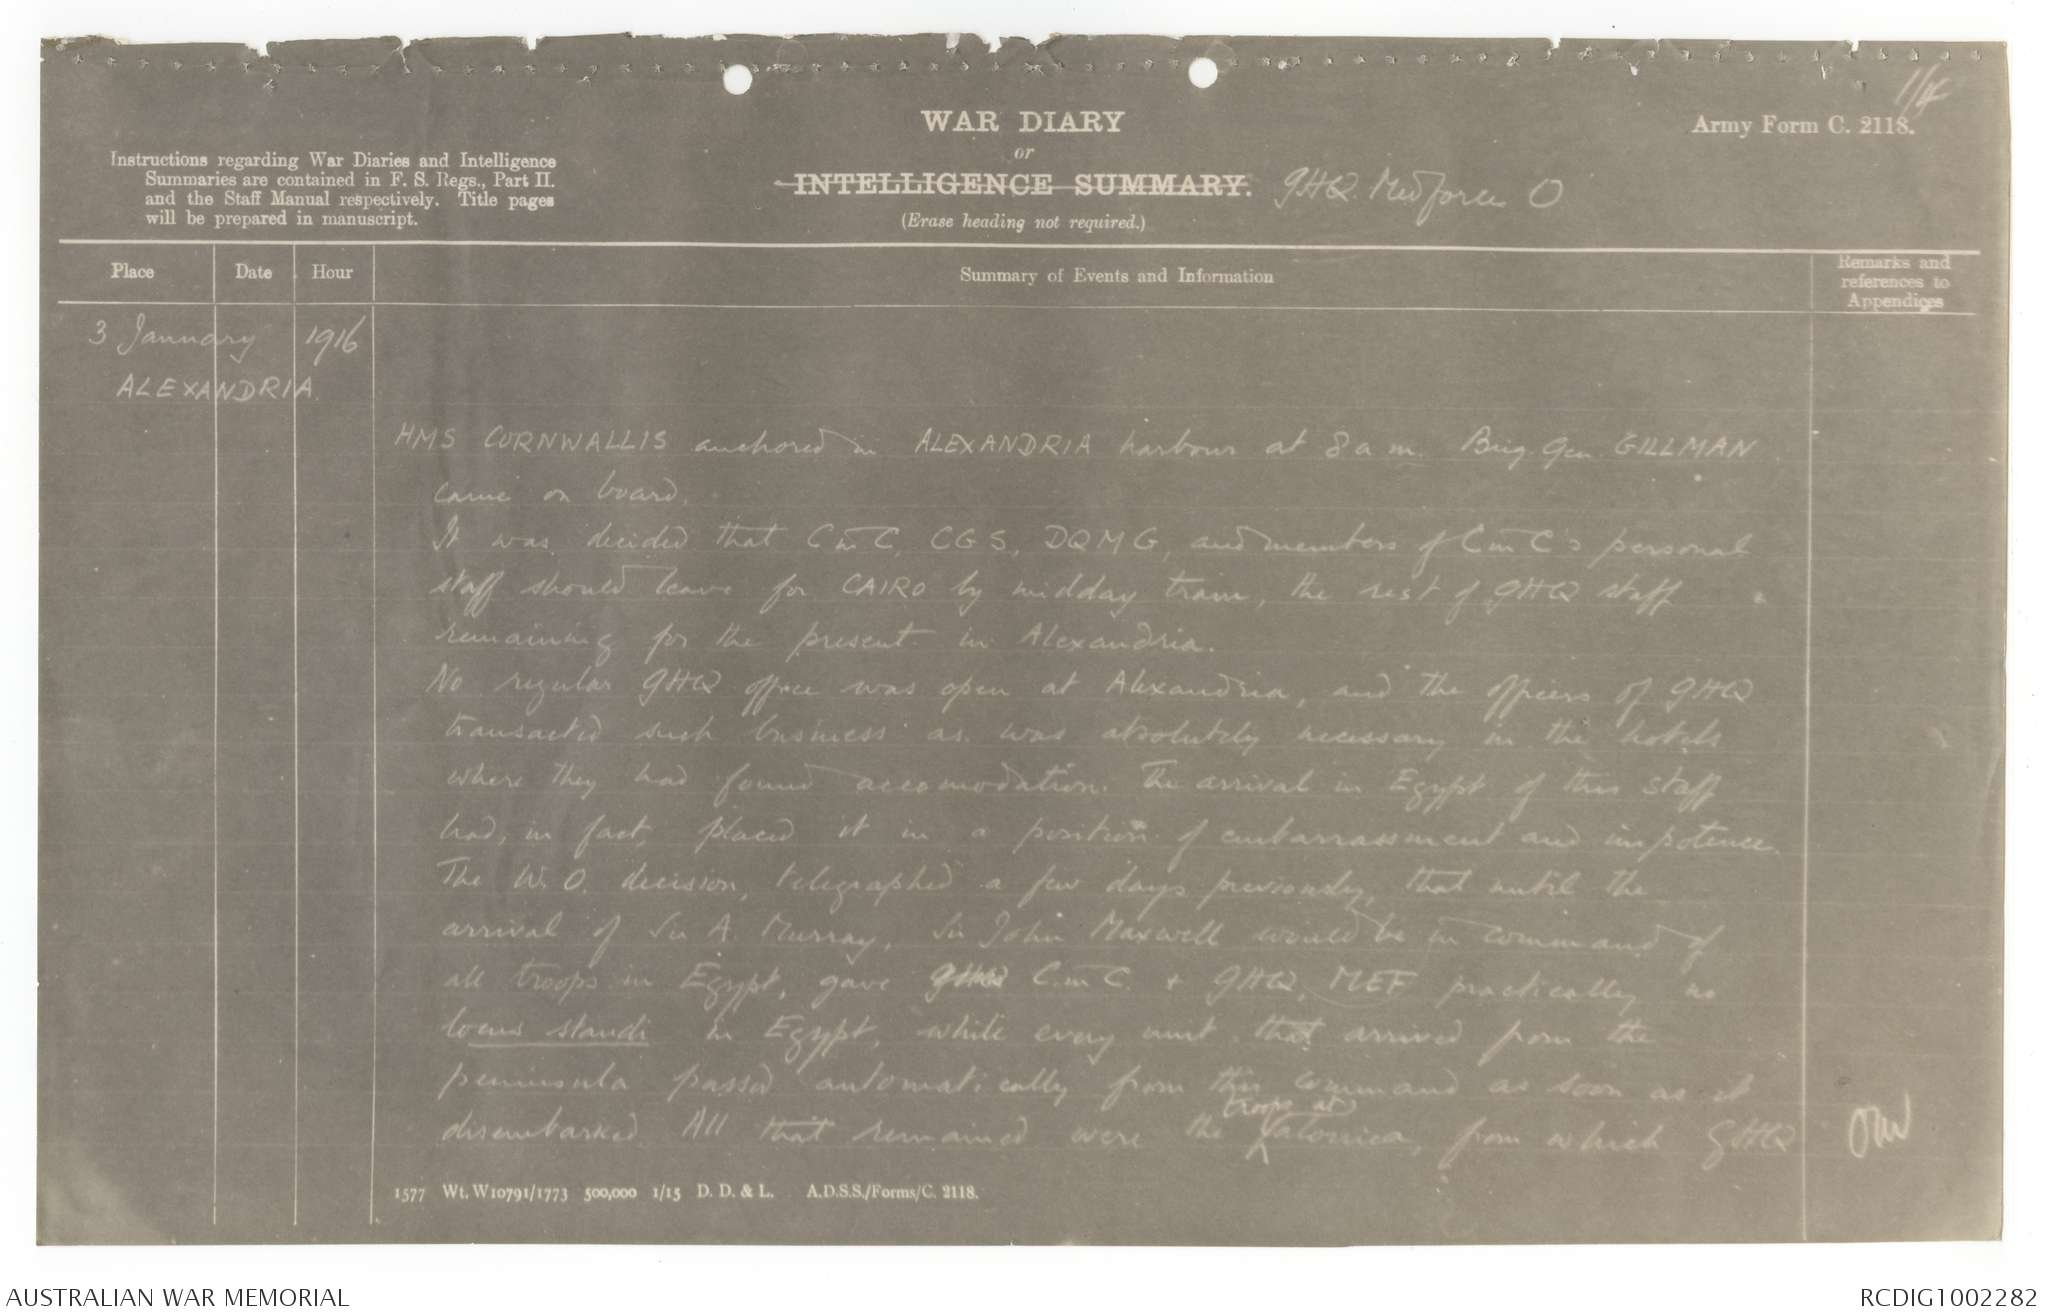 1/4
WAR DIARY
or
INTELLIGENCE SUMMARY.
(Erase heading not required.)
GHQ. Medforce O
Army Form C. 2118.
Instructions regarding War Diaries and Intelligence
Summaries are contained in F. S. Regs., Part II.
and the Staff Manual respectively. Title pages
will be prepared in manuscript.
Place
Date
Hour
Summary of Events and Information
Remarks and
references to
Appendices
3 January 1916
ALEXANDRIA.
HMS CORNWALLIS anchored in ALEXANDRIA harbour at 8 a m. Brig. Gen GILLMAN
came on board.
It was decided that C in C, CGS, DQMG, and members of C in C's personal
staff should leave for CAIRO by midday train, the rest of GHQ staff
remaining for the present in Alexandria.
No regular GHQ office was open at Alexandria, and the officers of GHQ
transacted such business as was absolutely necessary in the hotels
where they had found accomodation. The arrival in Egypt of this staff
had, in fact, placed it in a position of embarrassment and impotence.
The W.O. decision, telegraphed a few days previously, that until the
arrival of Sir A. Murray, Sir John Maxwell would be in command of
all troops in Egypt, gave GHQ C. in C. + GHQ, MEF practically no
locus standi in Egypt, while every unit that arrived from the
peninsula passed automatically from this command as soon as it
disembarked. All that remained were the troops at Salonica, from which GHQ
1577 Wt. W10791/1773 500,000 1/15 D. D. & L. A.D.S.S./Forms/C. 2118.
AUSTRALIAN WAR MEMORIAL
RCDIG1002282